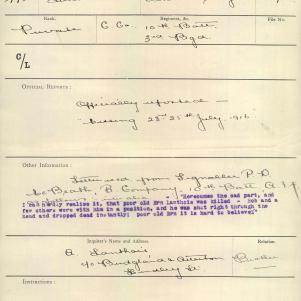 Rank.
Regiment, &c.
File No.
Private
C. Co.
10th Batt
3rd Bgd
C/L
OFFICIAL REPORTS:
Officially reported —
Missing 23rd 25th July 1916
Other Information:
Letter rec'd from Signaller P. D.
McBeath, B Company, 10th Batt A.I.F.
"Herecomes the sad part, and
I can hardly realize it, that poor old Ern Lanthois was killed - Bob and a
few others were with him in a position, and he was shot right through the
head and dropped dead instantly; poor old Ern it is hard to believe"
Inquirer's Name and Address.
Relation.
A. Lanthois
c/o
Brother
Instructions: